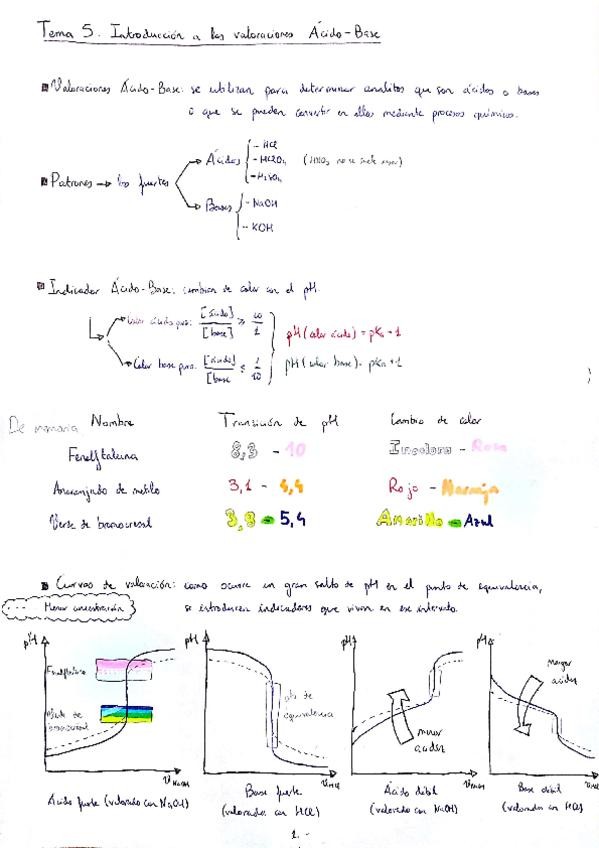 Tema 5. Introducción a las valoraciones Ácido-Base
Valoraciones Ácido-Base: se utilizan para determinar analitos que son ácidos o bases
o que se pueden convertir en ellos mediante procesos químicos.
Patrones → los fuertes
Ácidos
- HCl
- HClO₄ (HNO₃ no se suele usar)
- H₂SO₄
Bases
- NaOH
- KOH
Indicador Ácido-Base: cambian de color con el pH.
Color ácido para: [ácido]/[base] ≥ 10/1
Color base para: [ácido]/[base ≤ 1/10
pH (color ácido) = pKa + 1
pH (color base) = pKa + 1
De memoria
Nombre Transición de pH Cambio de color
Fenolftaleina 8,3 - 10 Incoloro - Rosa
Anaranjado de metilo 3,1 - 4,4 Rojo - Naranja
Verde de bromocresol 3,8 - 5,4 Amarillo - Azul
Curvas de valoración: como ocurre un gran salto de pH en el punto de equivalencia,
se introducen indicadores que viran en ese intervalo.
--- Menor concentración
pH
Fenolftaleina
Verde de bromocresol
V NaOH
Ácido fuerte (valorado con NaOH)
pH
pto de equivalencia
V HCl
Base fuerte
(valorada con HCl)
pH
menor acidez
V NaOH
Ácido débil
(valorado con NaOH)
pH
mayor acidez
V HCl
Base débil
(valorada con HCl)
1. -